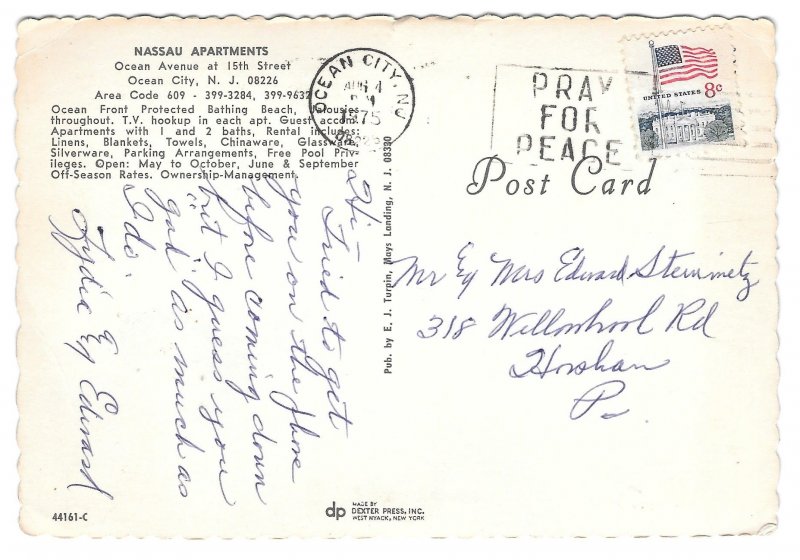 NASSAU APARTMENTS
Ocean Avenue at 15th Street
Ocean City, N. J. 08226
Area Code 609 - 399-3284, 399-9632
Ocean Front Protected Bathing Beach, Jalousies
throughout. T.V. hookup in each apt. Guest accom.
Apartments with 1 and 2 baths, Rental includes:
Linens, Blankets, Towels, Chinaware, Glassware,
Silverware, Parking Arrangements, Free Pool Priv-
ileges. Open: May to October, June & September
Off-Season Rates. Ownership-Management.
Hi -
Tried to get
you on the phone
before coming down
but I guess you
"gad" as much as
I do.
Lydia & Edward
44161-C
Pub. by E. J. Turpin, Mays Landing, N. J. 08330
dp
MADE BY
DEXTER PRESS, INC.
WEST NYACK, NEW YORK
OCEAN CITY, NJ
PM
1975
PRAY
FOR
PEACE
UNITED STATES 8c
Post Card
Mr & Mrs Edward Steinmetz
318 Rd
Horsham
Pa